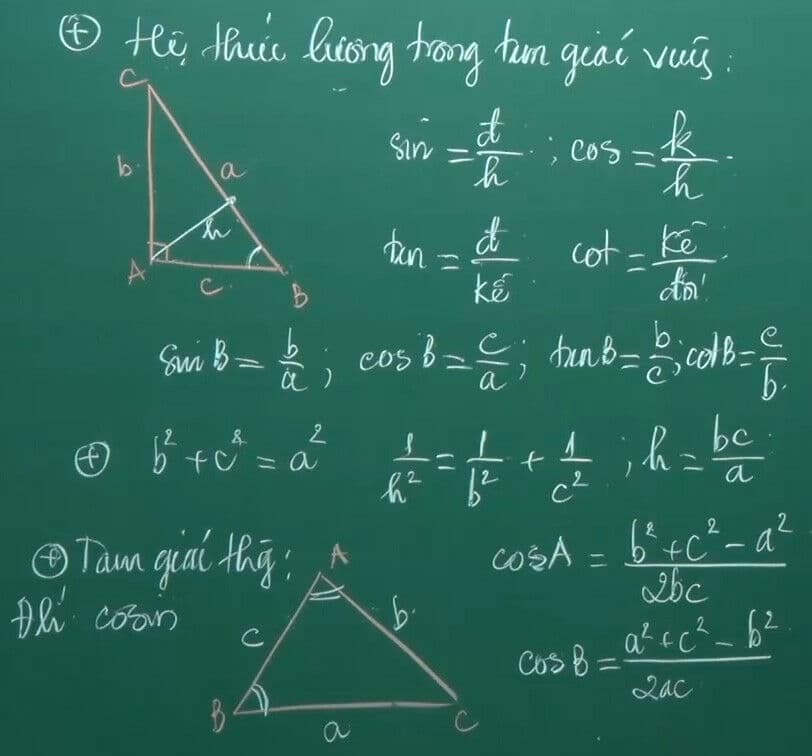 ⊕ Hệ thức lượng trong tam giác vuông:
C
b
a
h
A
c
B
sin = đ/h ; cos = k/h
tan = đ/kề cot = kề/đối
sin B = b/a ; cos B = c/a ; tan B = b/c ; cot B = c/b
⊕ b² + c² = a² 1/h² = 1/b² + 1/c² ; h = bc/a
⊕ Tam giác thg:
Đlí cosin
A
c
b
B
a
C
cos A = b² + c² - a² / 2bc
cos B = a² + c² - b² / 2ac